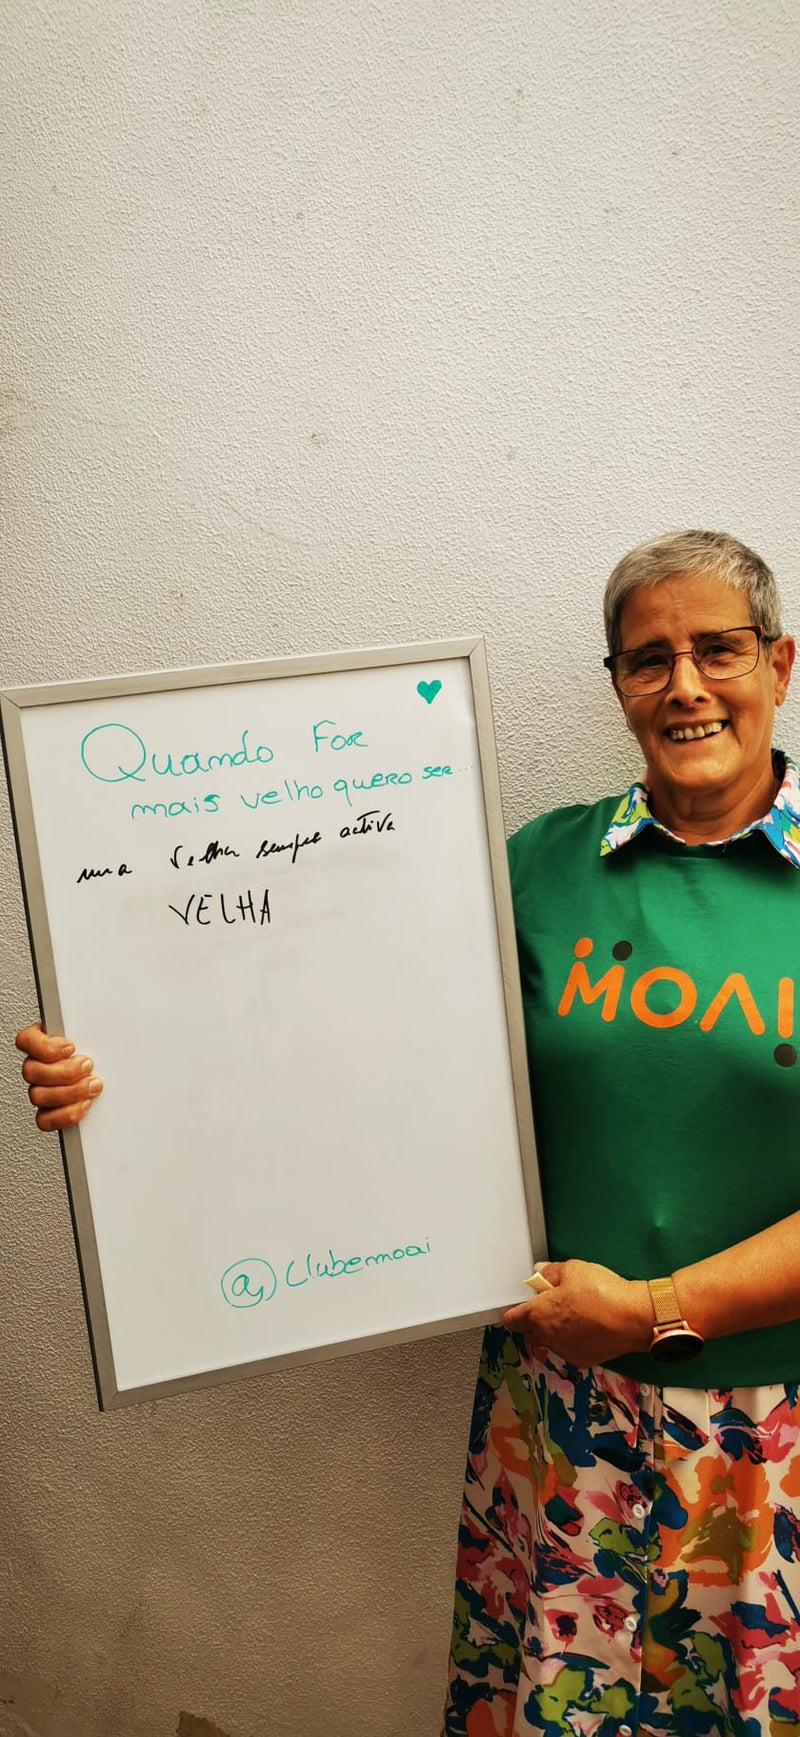 Quando For
mais velho quero ser...
uma velha sempre activa
VELHA
@Clubemoai
MOAI